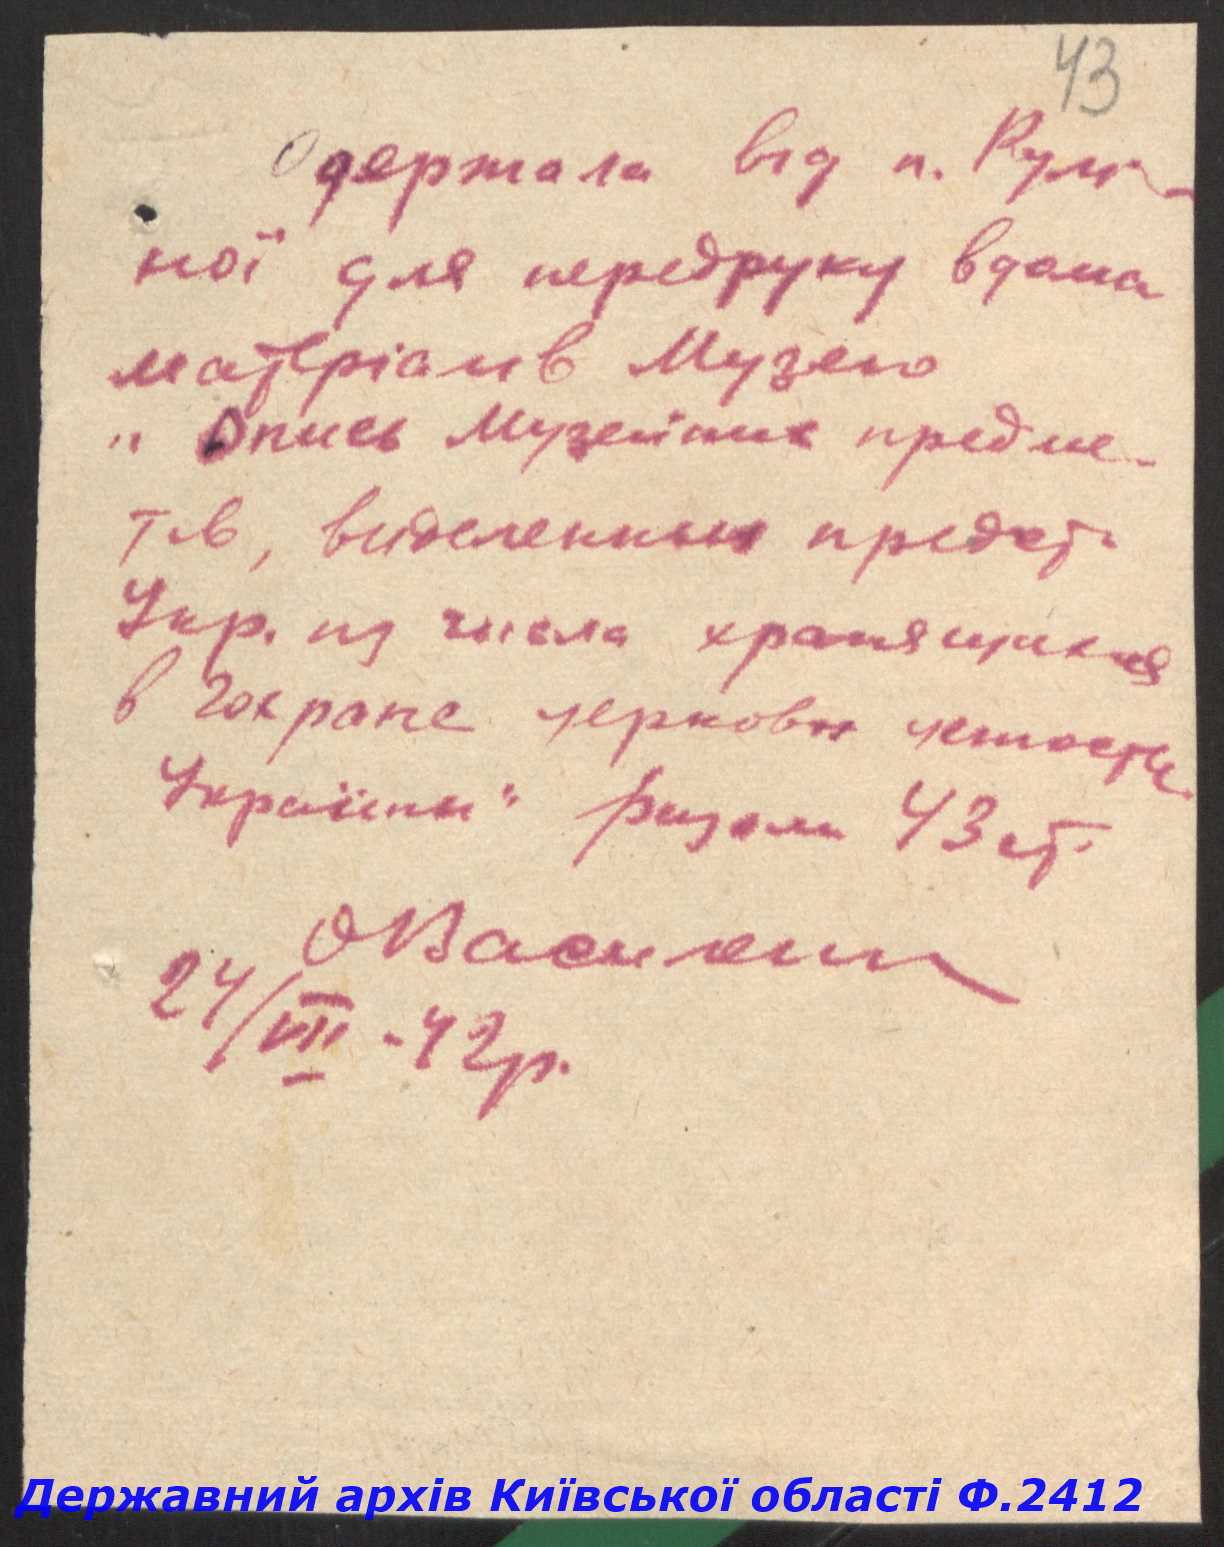 43
Одержала від п.
ної для передруку вдома
матеріалів Музею
"Опись Музейных предме-
тов, виделенных предст.
Укр. из числа хранящихся
в Гохране церковн ценност.
Украіны" Разом 43 ст.
24/VII -42р.
Державний архів Київської області Ф.2412